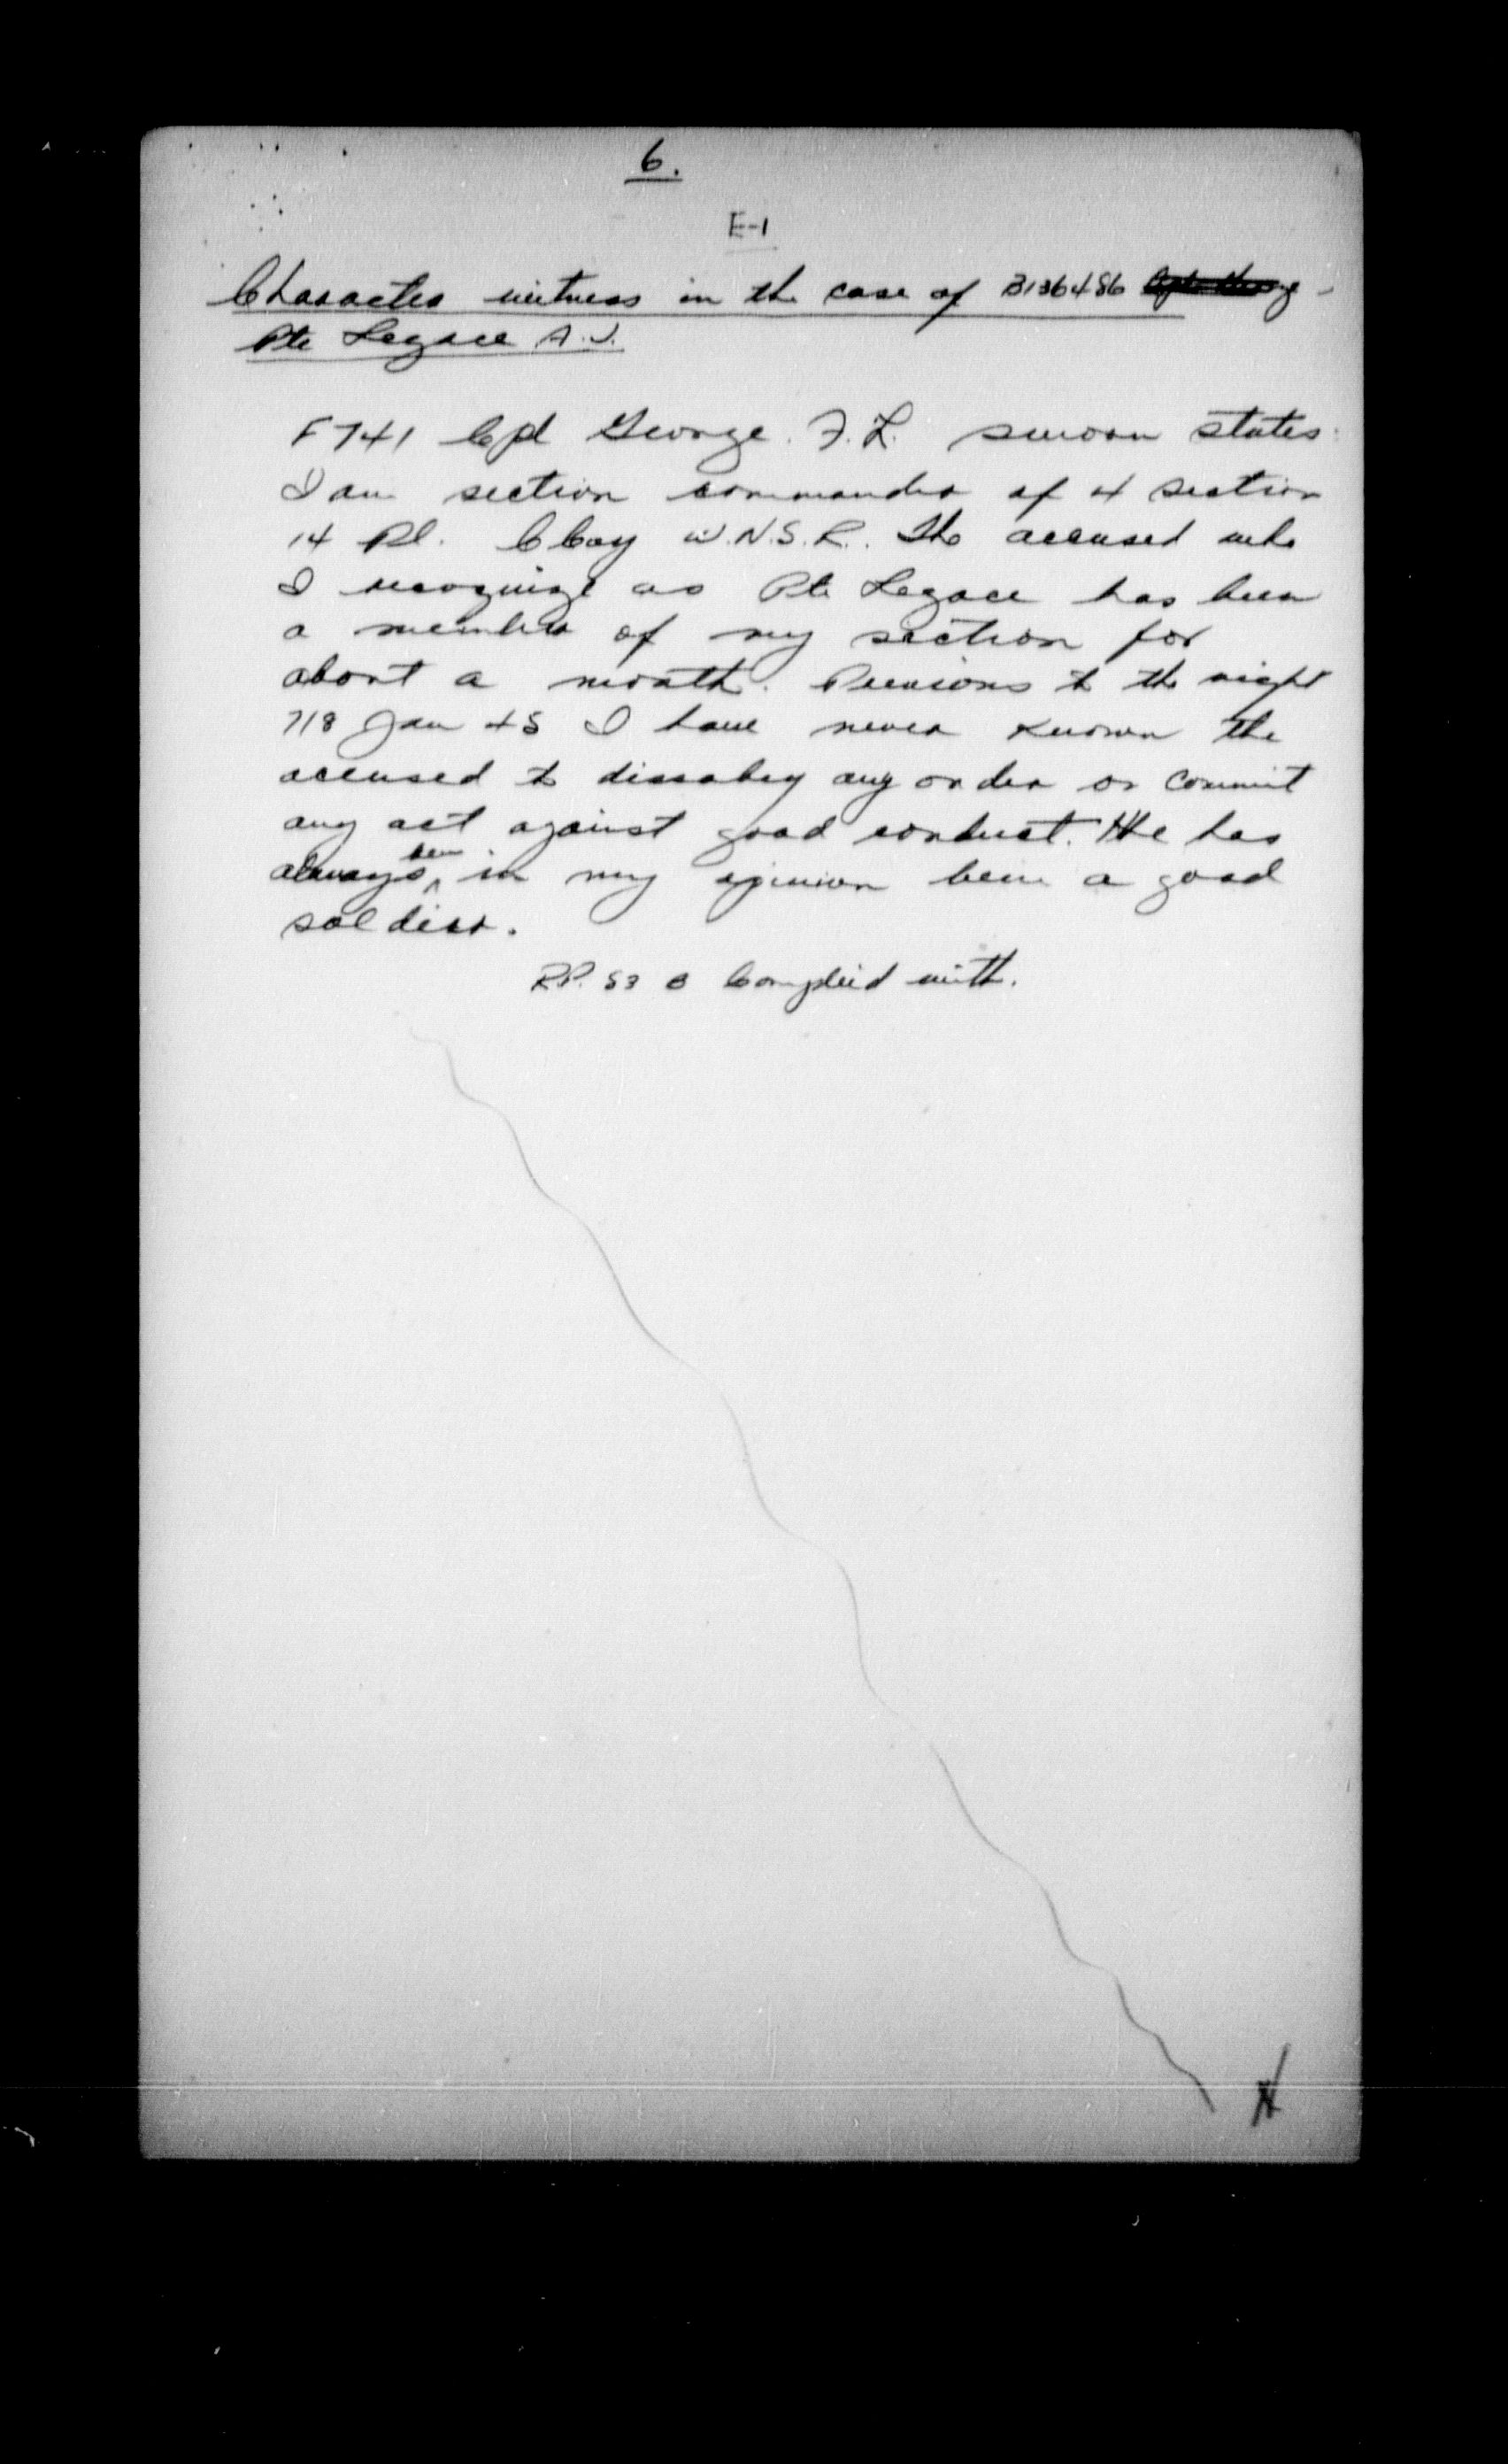 6.
E-1
Character witness in the case of B136486
Pte Legace A.J.
F741 Cpl George. F.L. sworn states:
I am section commander of 4 section
14 Pl. C Coy W.N.S.R. The accused who
I recognize as Pte Legace has been
a member of my section for
about a month. Previous to the night
7/8 Jan 45 I have never known the
accused to dissobey any order or commit
any act against good conduct. He has
always been in my opinion been a good
soldier.
R.P. 83 B Complied with.